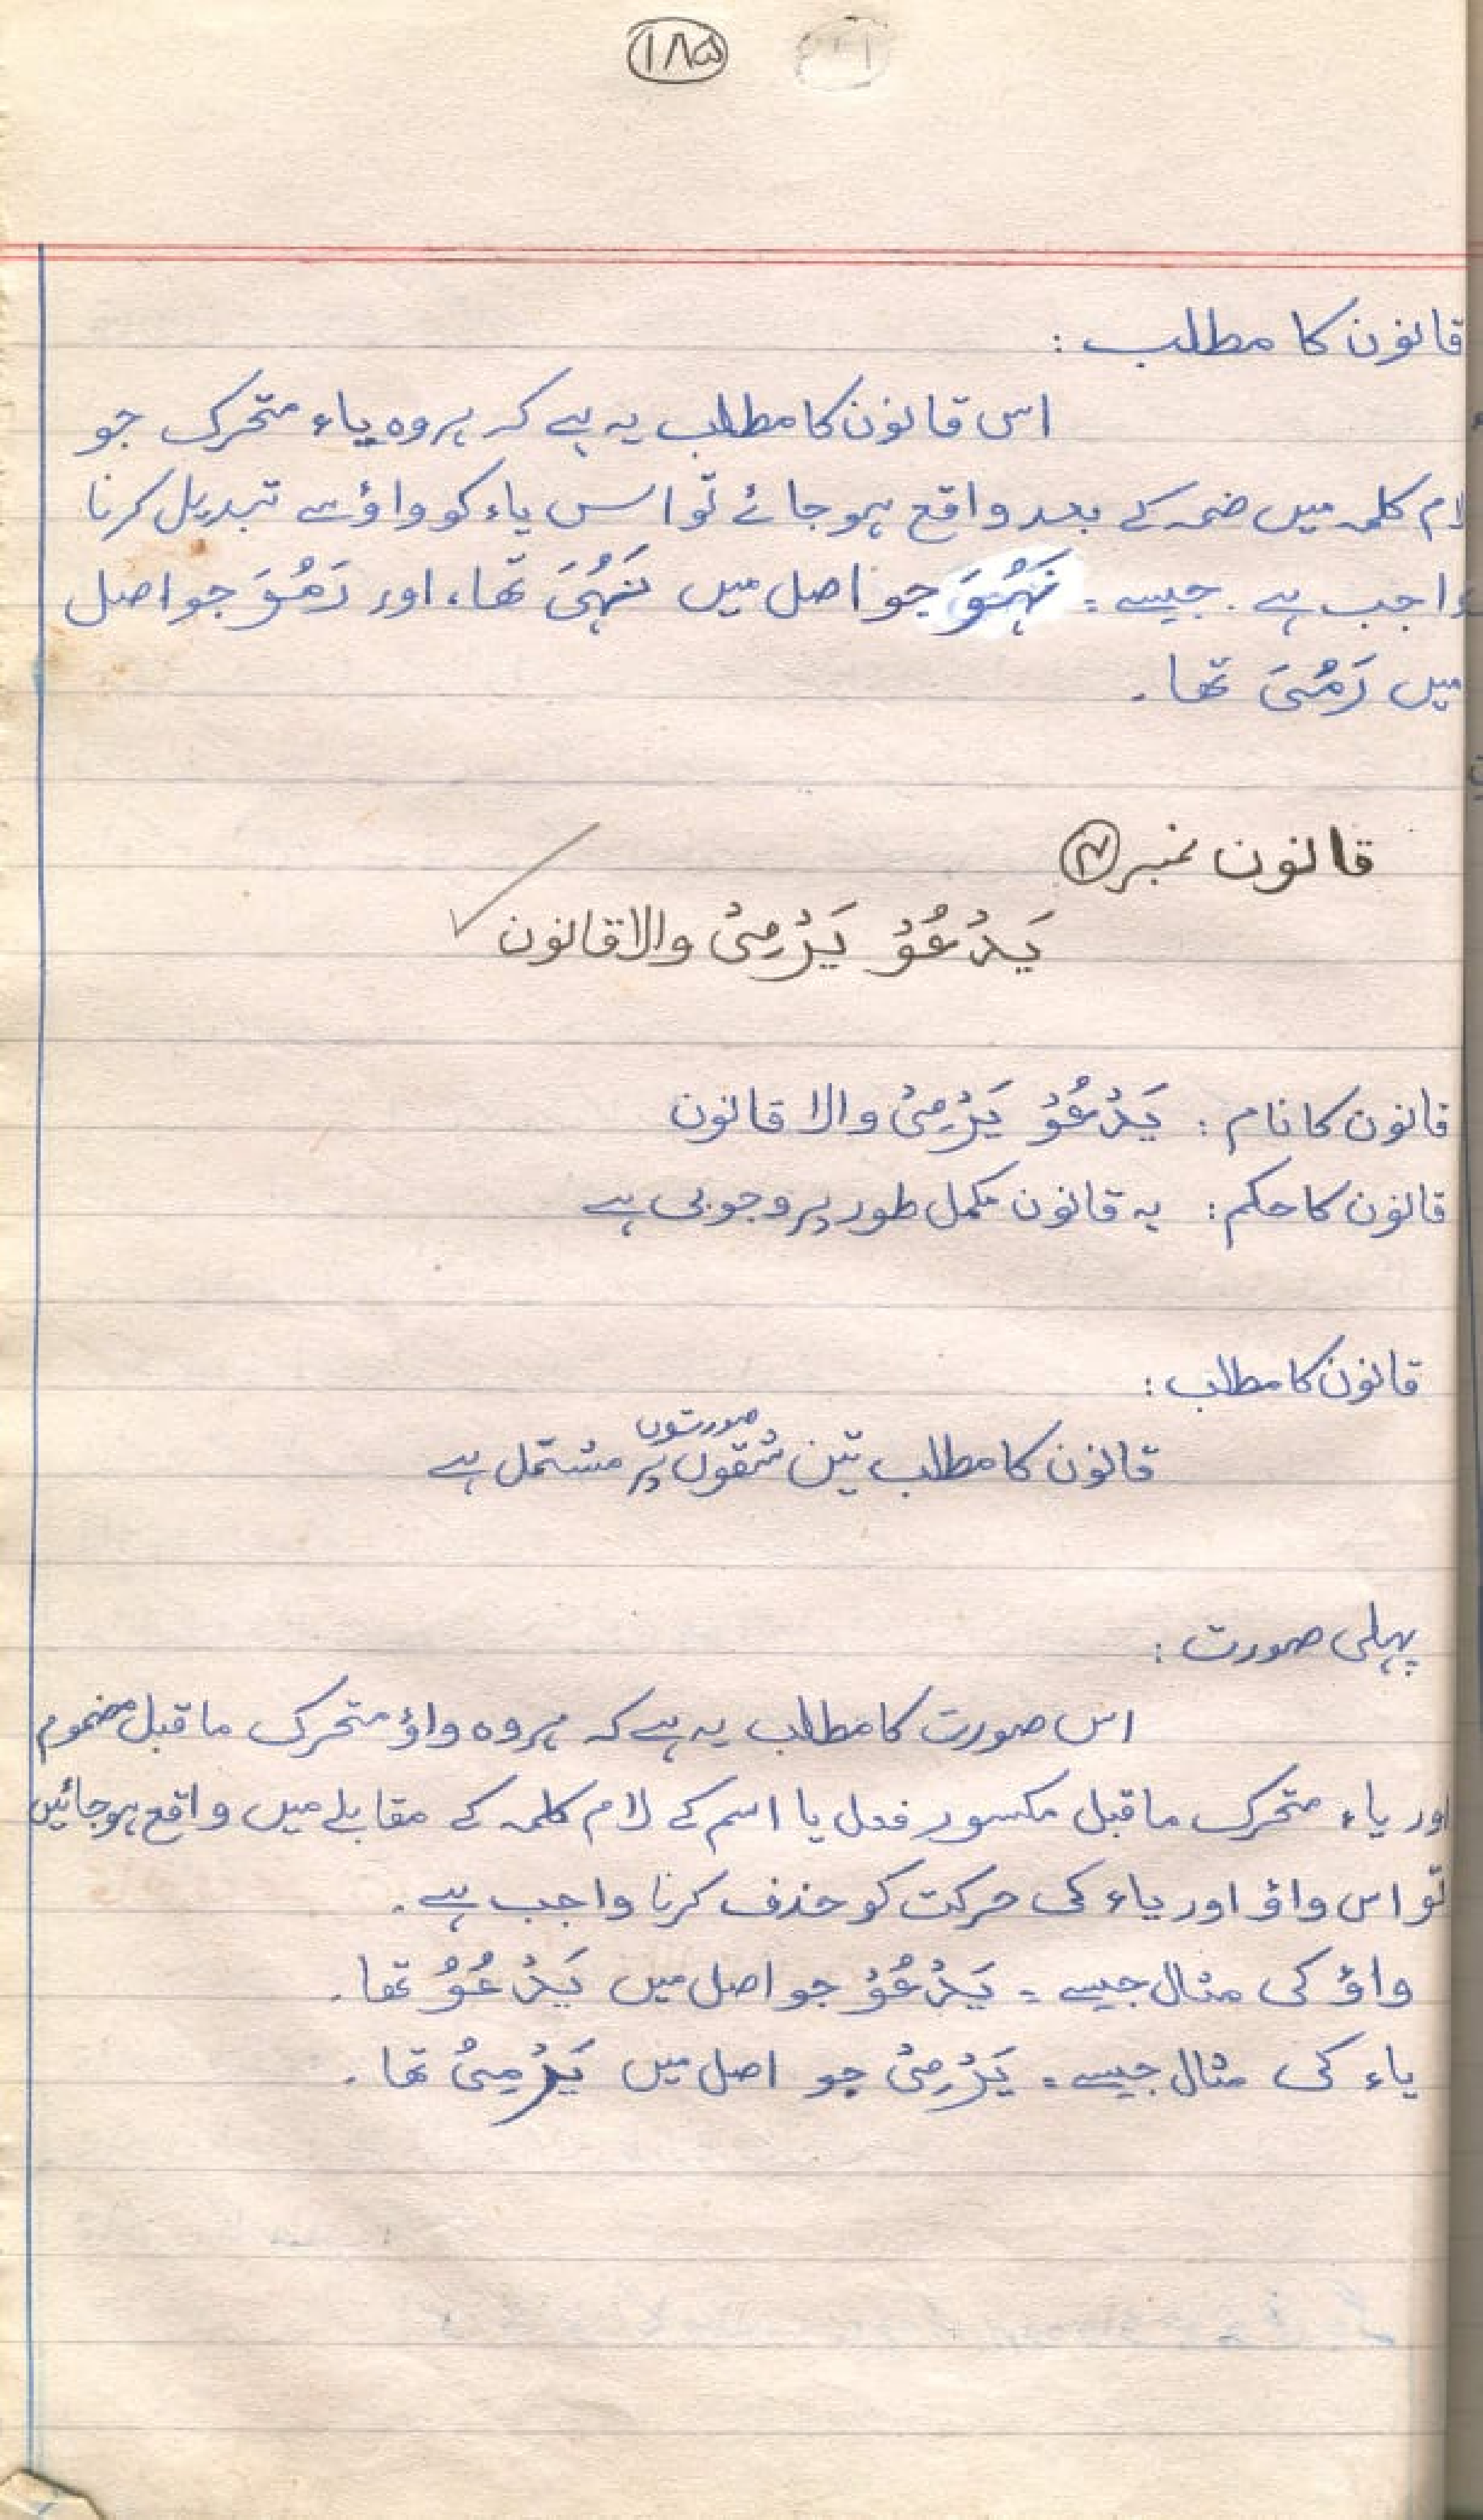 ۱۸۵
قانون کا مطلب :
اس قانون کا مطلب یہ ہے کہ ہر وہ یاء متحرک جو
لام کلمہ میں ضمہ کے بعد واقع ہو جائے تو اس یاء کو واؤ سے تبدیل کرنا
واجب ہے . جیسے = نَہُوَ جو اصل میں نَہُیَ تھا، اور رَمُوَ جو اصل
میں رَمُیَ تھا .
قانون نمبر
یَدْعُوْ یَرْمِیْ والا قانون
قانون کا نام : یَدْعُوْ یَرْمِیْ والا قانون
قانون کا حکم : یہ قانون مکمل طور پر وجوبی ہے
قانون کا مطلب :
صورتوں
قانون کا مطلب تین شقوں پر مشتمل ہے
پہلی صورت :
اس صورت کا مطلب یہ ہے کہ ہر وہ واؤ متحرک ماقبل مضموم
اور یاء متحرک ماقبل مکسور فعل یا اسم کے لام کلمہ کے مقابلے میں واقع ہو جائیں
تو اس واؤ اور یاء کی حرکت کو حذف کرنا واجب ہے .
واؤ کی مثال جیسے = یَدْعُوْ جو اصل میں یَدْعُوُ تھا .
یاء کی مثال جیسے = یَرْمِیْ جو اصل میں یَرْمِیُ تھا .